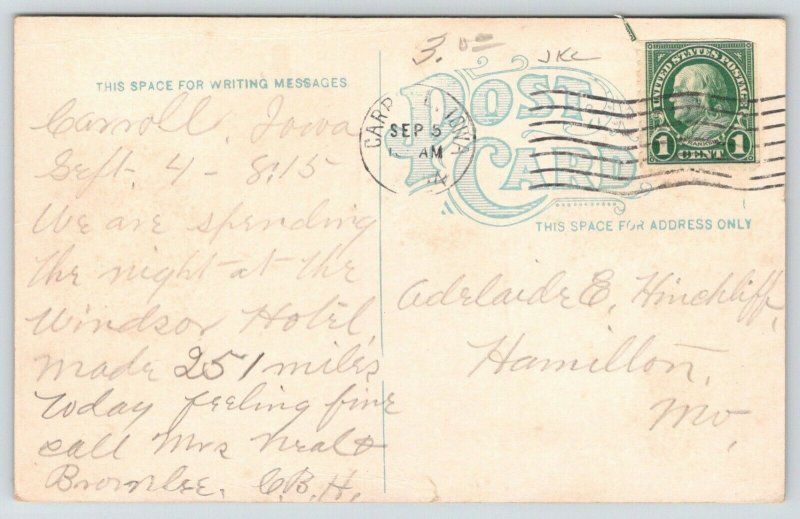 3.00 JKC
THIS SPACE FOR WRITING MESSAGES
POST CARD
UNITED STATES POSTAGE
FRANKLIN
1 CENT 1
CARROLL, IOWA
SEP 5
AM
THIS SPACE FOR ADDRESS ONLY
Carroll, Iowa
Sept. 4 - 8:15
We are spending
the night at the
Windsor Hotel,
made 251 miles
today feeling fine
call Mrs Neal &
Brownlee. C.B.H.
Adelaide E. Hinchliff,
Hamilton,
Mo,